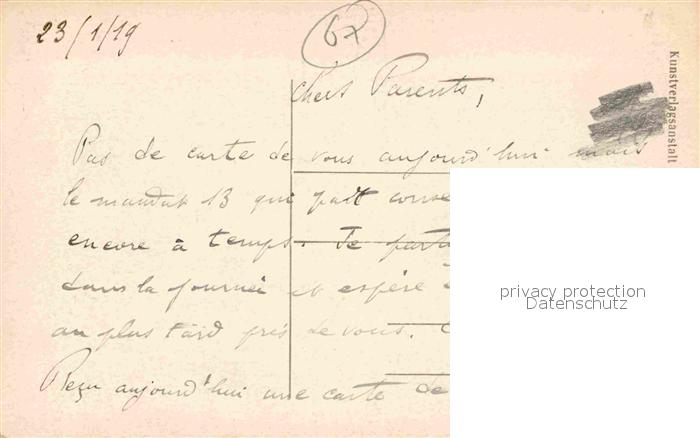 23/1/19
6x
Chers Parents,
Kunstverlagsanstalt
Pas de carte de vous aujourd'hui mais
le mandat 13 qui fait
encore à temps. Je
dans la journée et espère
au plus tard près de vous.
Reçu aujourd'hui une carte de
privacy protection
Datenschutz